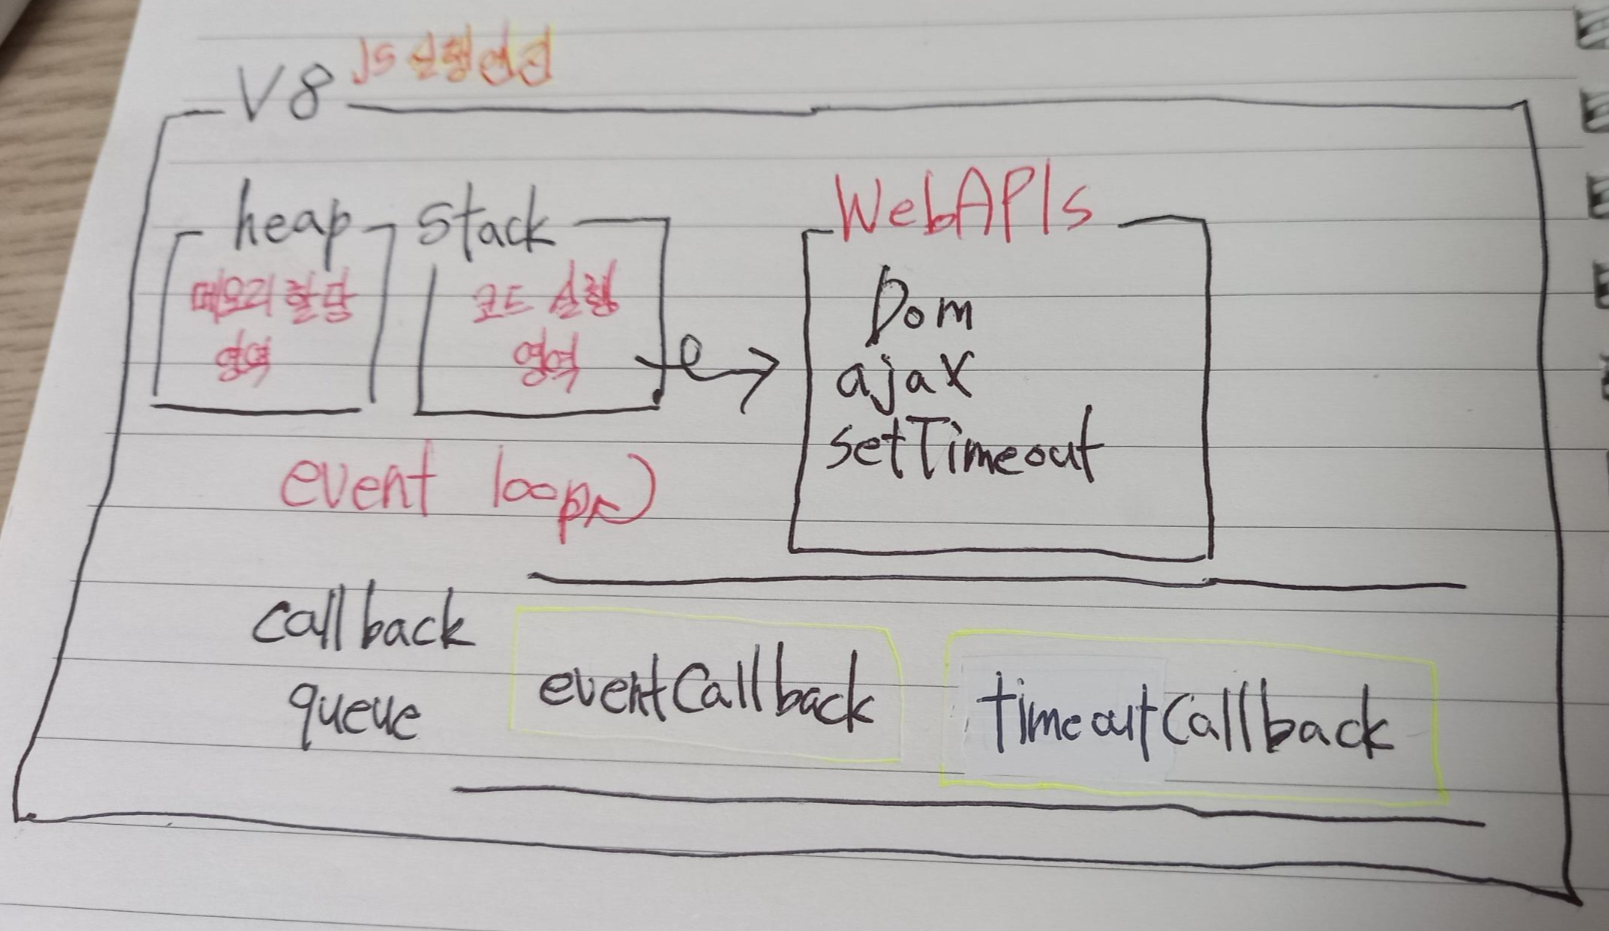 V8 JS 실행 엔진
heap
메모리 할당
영역
stack
코드 실행
영역
WebAPIs
Dom
ajax
setTimeout
event loop
callback
queue
eventCallback
timeoutCallback